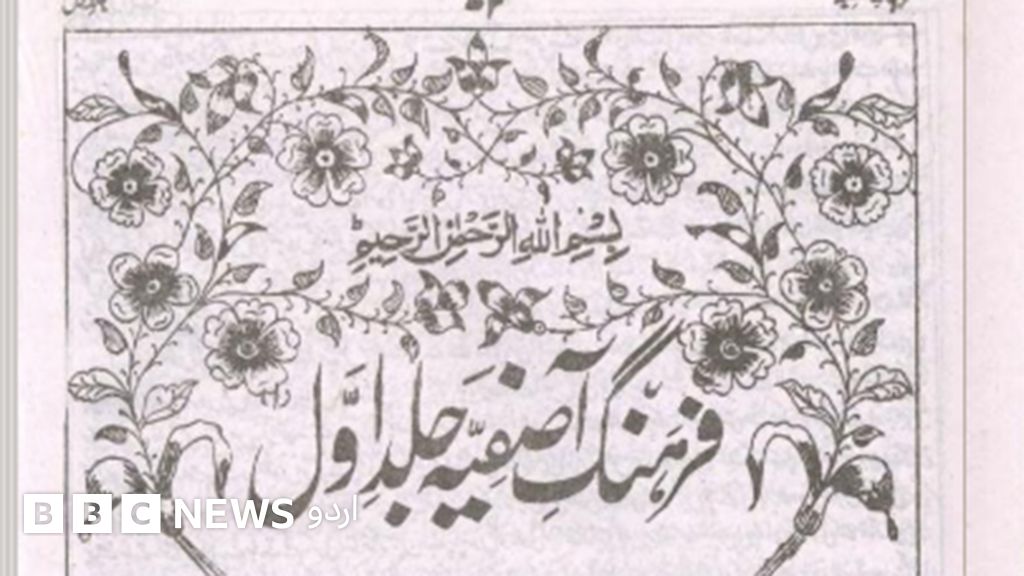 بِسْمِ اللهِ الرَّحْمٰنِ الرَّحِيْمِ
فرہنگِ آصفیّہ جلد اوّل
BBC NEWS اردو